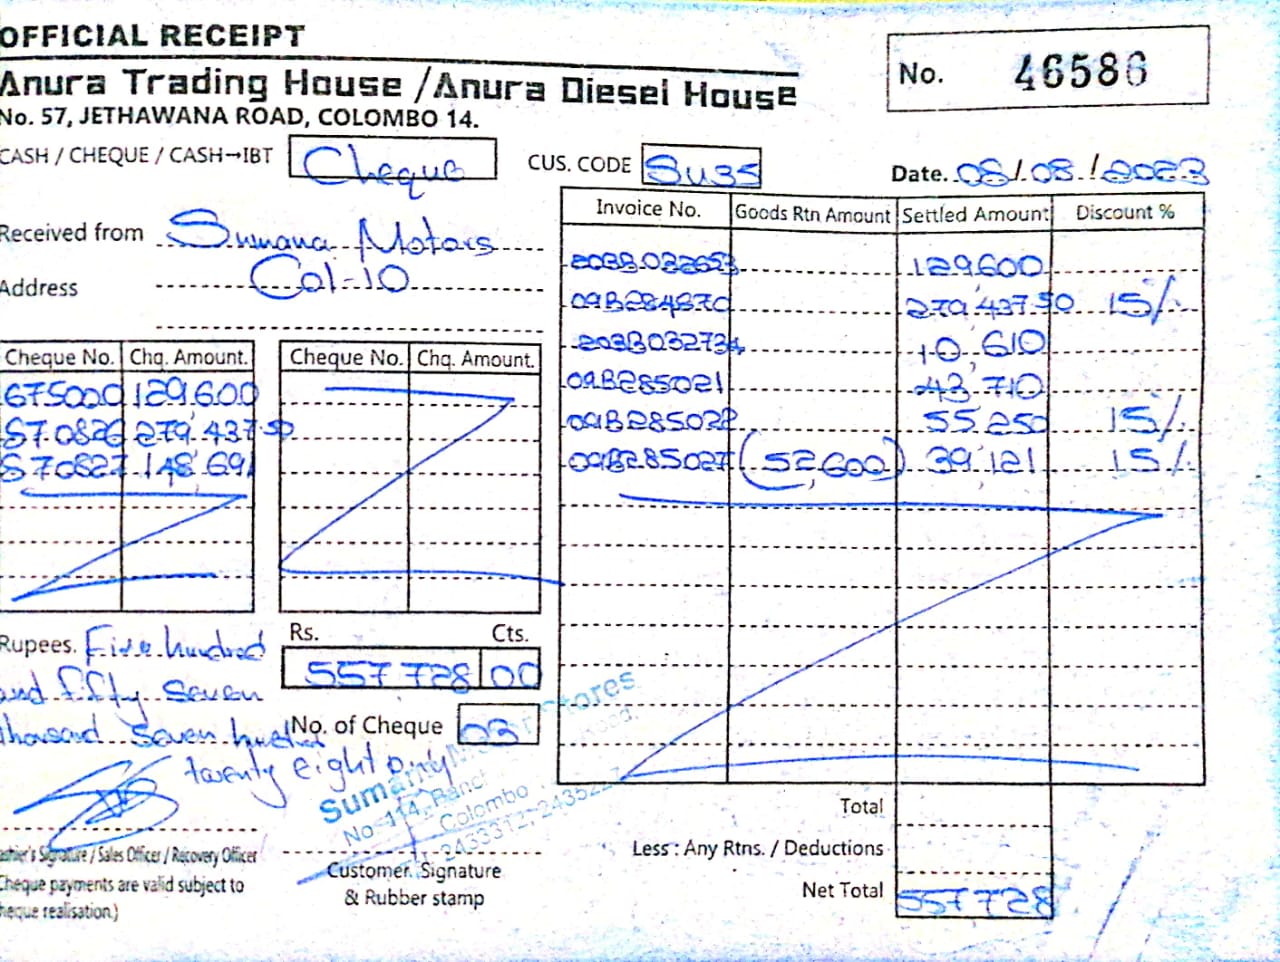 OFFICIAL RECEIPT
Anura Trading House / Anura Diesel House
No. 57, JETHAWANA ROAD, COLOMBO 14.
No. 46586
CASH / CHEQUE / CASH→IBT Cheque
CUS. CODE SU35
Date. 08/08/2023
Received from Sumana Motors
Address Col-10
Invoice No. Goods Rtn Amount Settled Amount Discount %
203B032653 129,600
09B284870 279,437.50 15%
203B032734 10,610
09B285021 43,710
09B285028 55,250 15%
09B285027 (52,600) 39,121 15%
Cheque No. Chq. Amount. Cheque No. Chq. Amount.
675000 129,600
570826 279,437 50
570827 148,691
Rupees. Five hundred
and fifty seven
thousand seven hundred
twenty eight only
Rs. Cts.
557 728 00
No. of Cheque 03
No. 114,
Colombo
2433312,
Customer Signature
& Rubber stamp
Cashier's Signature / Sales Officer / Recovery Officer
Cheque payments are valid subject to
cheque realisation.)
Total
Less : Any Rtns. / Deductions
Net Total 557,728